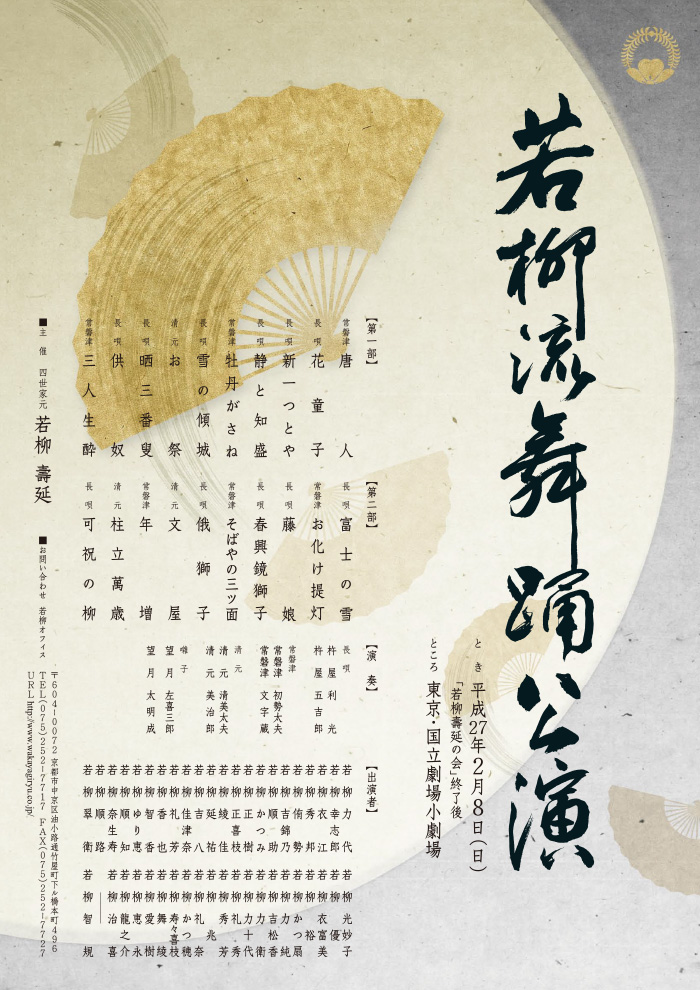 若柳流舞踊公演
とき 平成27年2月8日(日)
「若柳壽延の会」終了後
ところ 東京・国立劇場小劇場
【第一部】
常磐津 唐人
長唄 花童子
長唄 新一つとや
長唄 静と知盛
常磐津 牡丹がさね
長唄 雪の傾城
清元 お祭
長唄 晒三番叟
長唄 供奴
常磐津 三人生酔
【第二部】
長唄 富士の雪
常磐津 お化け提灯
長唄 藤娘
長唄 春興鏡獅子
常磐津 そばやの三ツ面
長唄 俄獅子
清元 文屋
常磐津 年増
清元 柱立萬歳
長唄 可祝の柳
【演奏】
長唄
杵屋利光
杵屋五吉郎
常磐津
常磐津初勢太夫
常磐津文字蔵
清元
清元清美太夫
清元美治郎
囃子
望月左喜三郎
望月太明成
【出演者】
若柳力代
若柳幸志郎
若柳衣江
若柳秀邦
若柳侑勢
若柳吉錦乃
若柳順助
若柳かつみ
若柳正樹
若柳正喜枝
若柳綾佳
若柳延祐
若柳吉八
若柳佳津奈
若柳礼芳
若柳香也
若柳智香
若柳ゆり恵
若柳順知
若柳奈生寿
若柳順路
若柳翠衛
若柳光妙子
若柳優
若柳衣富美
若柳裕
若柳かつ扇
若柳力純
若柳吉松香
若柳力衛
若柳力十代
若柳礼秀
若柳秀芳
若柳兆
若柳礼奈
若柳かつ穂
若柳寿々喜枝
若柳舞綾
若柳愛樹
若柳恵永
若柳龍之介
若柳治喜
若柳智規
■主催 四世家元 若柳壽延
■お問い合わせ 若柳オフィス
〒604-0072 京都市中京区油小路通竹屋町下ル橋本町496
TEL(075)252-7717 FAX(075)252-7727
URL http://www.wakayagiryu.co.jp/